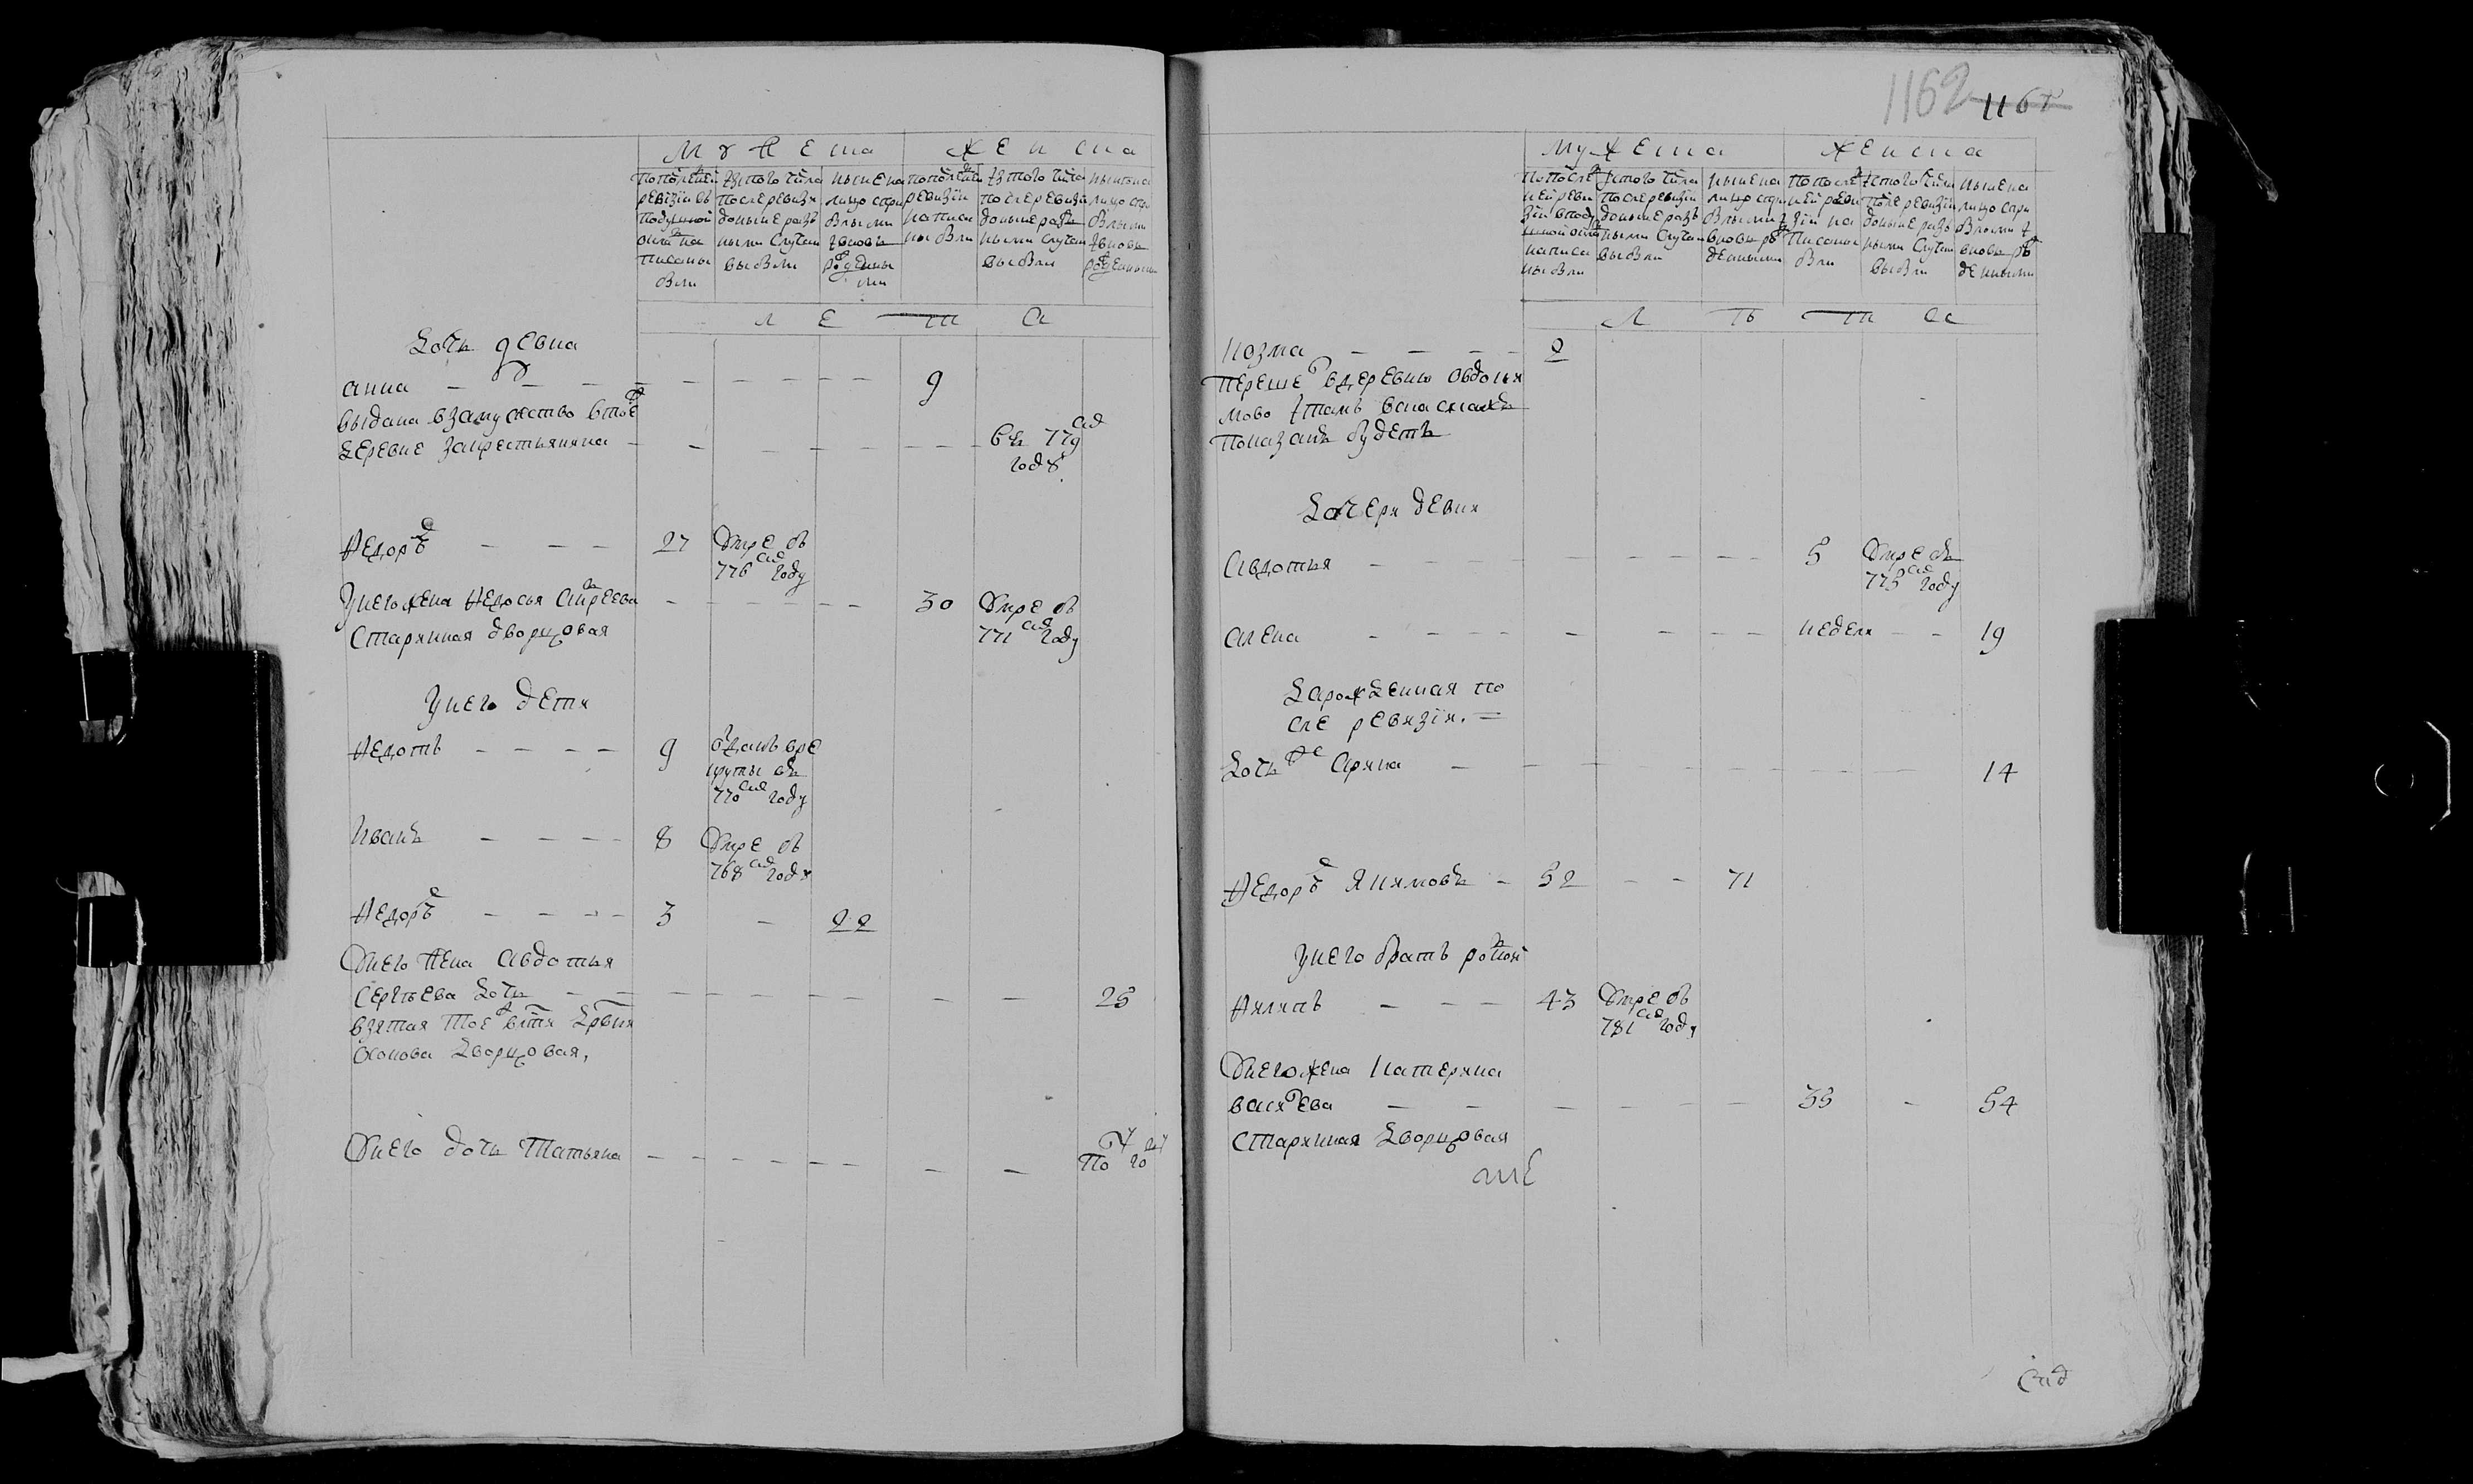 Мужеска Женска
по последней ревизіи въ подушной окладъ написаны были
изъ того числа после ревизіи до ныне разными случаи выбыли
ныне на лицо с прибылыми и вновь рожденными
по последней ревизіи написаны были
изъ того числа после ревизіи до ныне разными случаи выбыли
ныне на лицо с прибылыми и вновь рожденными
Л е т а
дочь девка
анна — — — — 9
выдана взамужство втой
деревне закрестьянина — — — — въ 779
году
Федоръ — — — 27 умре въ
776 году
Унего жена Федосья андреева — — — 30 умре въ
старинная дворцовая 771 году
Унего дети
Федотъ — — — — 9 отданъ вре
круты въ
770 году
Иванъ — — — — 8 умре въ
768 году
Федоръ — — — — 3 — 22
Унего жена авдотья
сергъева дочь — — — — 25
взятая тое
дворцовая,
Унего дочь Татьяна — — — —
по го
1162 116
Мужеска Женска
по последней ревизіи вподушной окладъ написаны были
изтого числа после ревизіи до ныне разными случаи выбыли
ныне на лицо с прибылыми и вновь рожденными
по последней ревизіи написаны были
изтого числа после ревизіи до ныне разными случаи выбыли
ныне на лицо с прибылыми и вновь рожденными
Л ѣ т а
Козма — — — — 2
перешел вдеревню
и тамъ
показанъ будетъ
дочери девки
авдотья — — — — 5 умре въ
775 году
алена — — — — недели — — 19
зарожденная по
сле ревизіи. =
дочь арина — — — — 14
Федоръ Якимовъ — 52 — — 71
Унего братъ родной
Филипъ — — — 43 умре въ
781 году
Унего жена катерина
васильева — — — — 35 — 54
старинная дворцовая